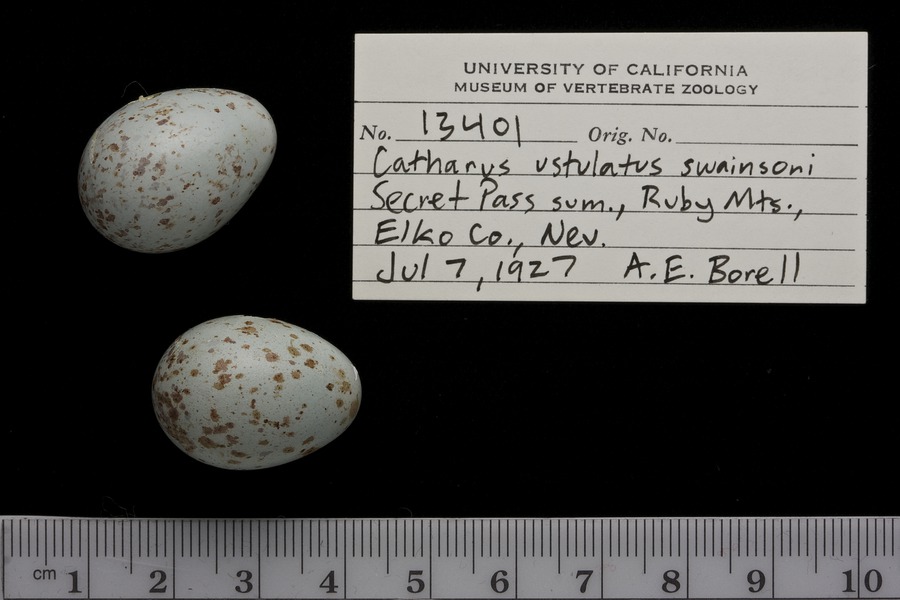 UNIVERSITY OF CALIFORNIA
MUSEUM OF VERTEBRATE ZOOLOGY
No. 13401 Orig. No.
Catharus ustulatus swainsoni
Secret Pass sum., Ruby Mts.,
Elko Co., Nev.
Jul 7, 1927 A. E. Borell
cm 1 2 3 4 5 6 7 8 9 10